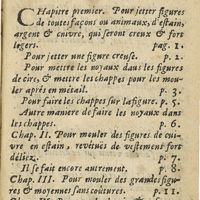 CHapitre premier. Pour jetter figures
de toutes façons ou animaux, d'estain,
argent & cuivre, qui seront creux & fort
legers. pag. 1.
Pour jetter une figure creuse. p. 2.
Pour mettre les noyaux dans les figures
de cire, & mettre les chappes pour les mou-
ler aprés en métail. p. 3.
Pour faire les chappes sur la figure. p. 5.
Autre maniere de faire les noyaux dans
les chappes. p. 6.
Chap. II. Pour mouler des figures de cui-
vre en estain, revétuës de vétement fort
déliez. p. 7.
Il se fait encore autrement. p. 8.
Chap. III. Pour mouler des grandes figu-
res & moyennes sans coûtures. p. 11.